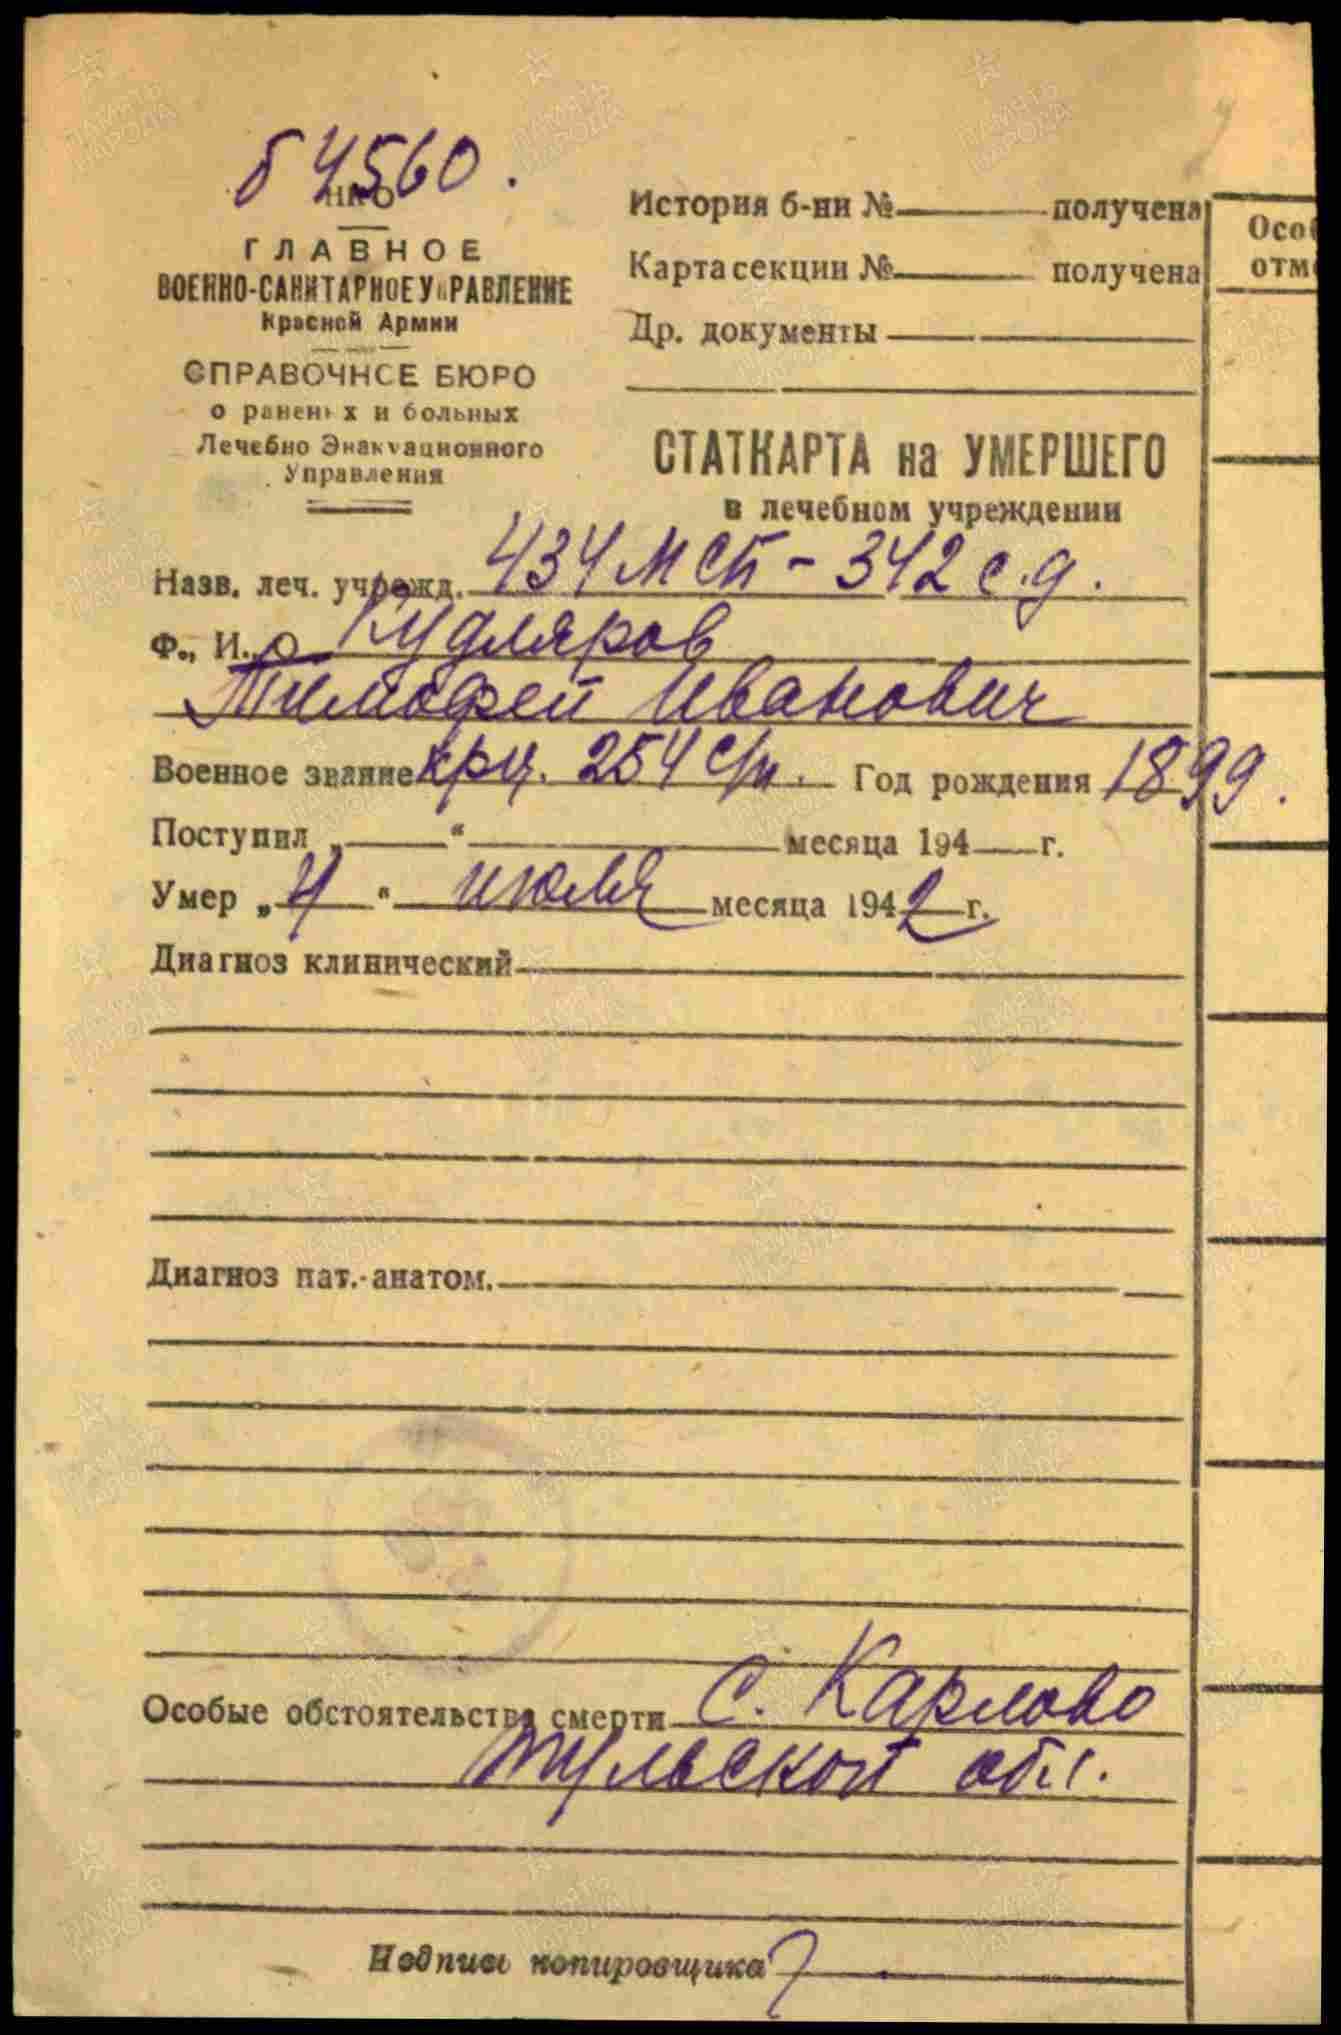 б 4560.
НКО
ГЛАВНОЕ
ВОЕННО-САНИТАРНОЕ УПРАВЛЕНИЕ
Красной Армии
СПРАВОЧНОЕ БЮРО
о раненых и больных
Лечебно Эвакуационного
Управления
История б-ни № получена
Карта секции № получена
Др. документы
Осо
отм
СТАТКАРТА на УМЕРШЕГО
в лечебном учреждении
Назв. леч. учрежд. 434 МСБ - 342 с.д.
Ф., И., О. Кудляров
Тимофей Иванович
Военное звание крц. 254 с/п. Год рождения 1899.
Поступил „ “ месяца 194 г.
Умер „4“ июля месяца 1942 г.
Диагноз клинический
Диагноз пат.-анатом.
Особые обстоятельства смерти с. Карлово
Тульской обл.
Подпись копировщика
ПАМЯТЬ НАРОДА